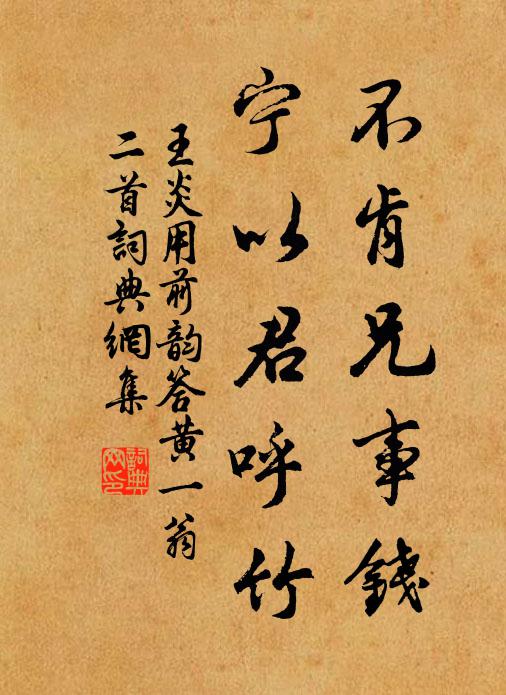 不肯兄事錢
宁以君呼竹
王炎用前韵答黄一翁
二首詞典網集
詞典網印